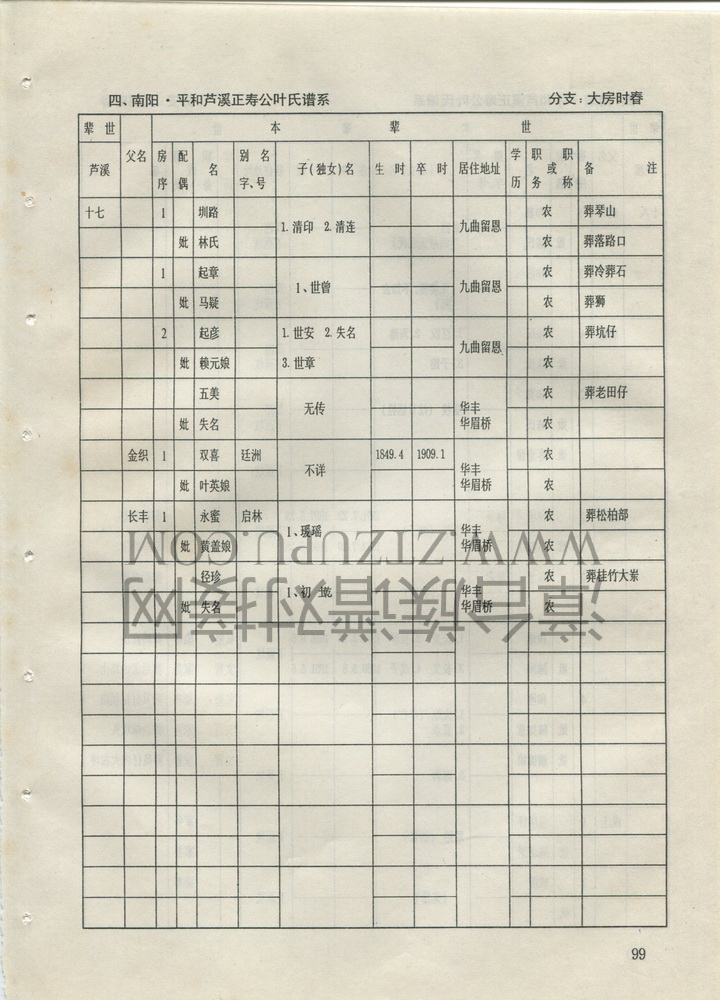 四、南阳·平和芦溪正寿公叶氏谱系 分支：大房时春
辈世 本辈世
芦溪 父名 房序 配偶 名 别名字、号 子(独女)名 生时 卒时 居住地址 学历 职务或职称 备注
十七 1 圳路 1.清印 2.清连 九曲留恩 农 葬琴山
妣 林氏 农 葬落路口
1 起章 1、世曾 九曲留恩 农 葬冷葬石
妣 马疑 农 葬狮
2 起彦 1.世安 2.失名 九曲留恩 农 葬坑仔
妣 赖元娘 3.世章 农
五美 无传 华丰 农 葬老田仔
妣 失名 华眉桥 农
金织 1 双喜 廷洲 不详 1849.4 1909.1 华丰 农
妣 叶英娘 华眉桥 农
长丰 1 永蜜 启林 1、瑗瑶 华丰 农 葬松柏部
妣 黄盖娘 华眉桥 农
径珍 1、初 华丰 农 葬桂竹大岽
妣 失名 华眉桥 农
WWW.ZTZUPU.COM
漳台族谱对接网
99